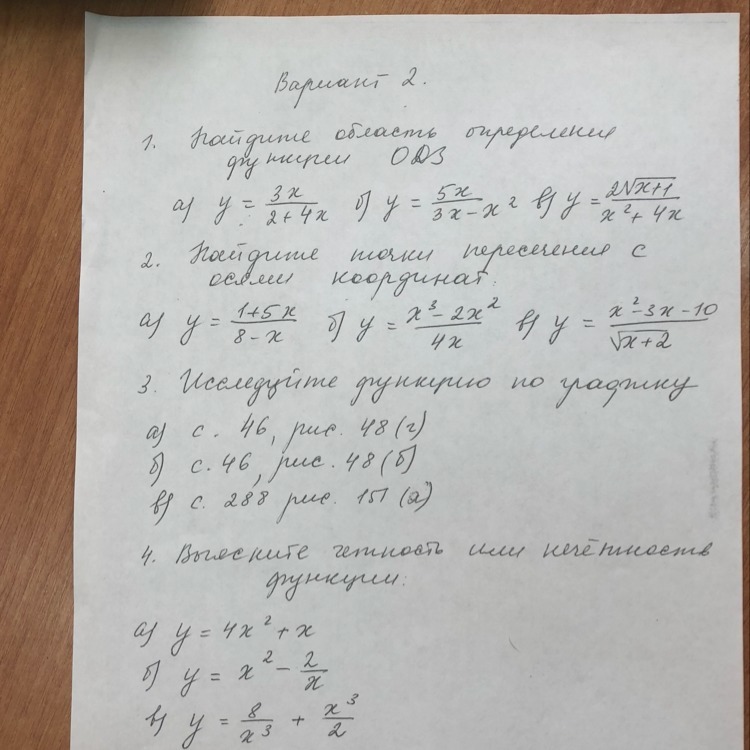 Вариант 2.
1. Найдите область определения
функции ОДЗ
а) y = 3x/(2+4x) б) y = 5x/(3x-x²) в) y = 2√(x+1)/(x²+4x)
2. Найдите точки пересечения с
осями координат:
а) y = (1+5x)/(8-x) б) y = (x³-2x²)/(4x) в) y = (x²-3x-10)/√(x+2)
3. Исследуйте функцию по графику
а) с. 46, рис. 48 (г)
б) с. 46, рис. 48 (б)
в) с. 288 рис. 151 (а)
4. Выясните четность или нечётность
функции:
а) y = 4x² + x
б) y = x² - 2/x
в) y = 8/x³ + x³/2